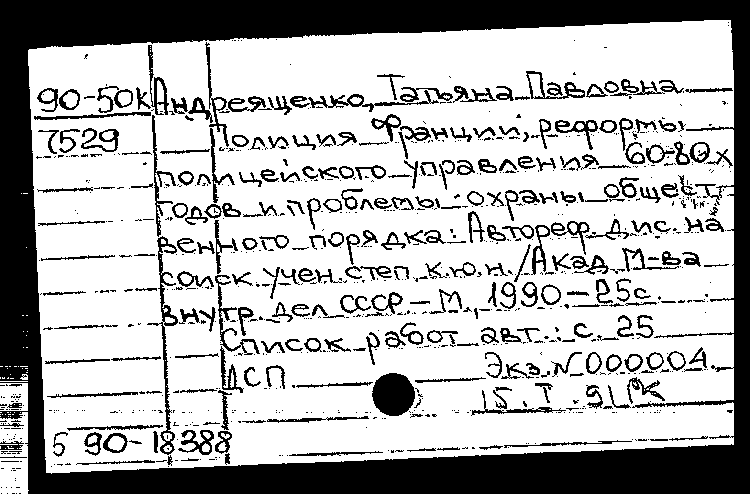 90-50к Андреященко, Татьяна Павловна
7529 Полиция Франции, реформы
полицейского управления 60-80х
годов и проблемы охраны общест-
венного порядка: Автореф. дис. на
соиск. учен. степ. к.ю.н. /Акад. М-ва
внутр. дел СССР – М., 1990 – 25с.
Список работ авт.: с. 25
ДСП Экз. N 000004.
15. I. 91
5 90-18388